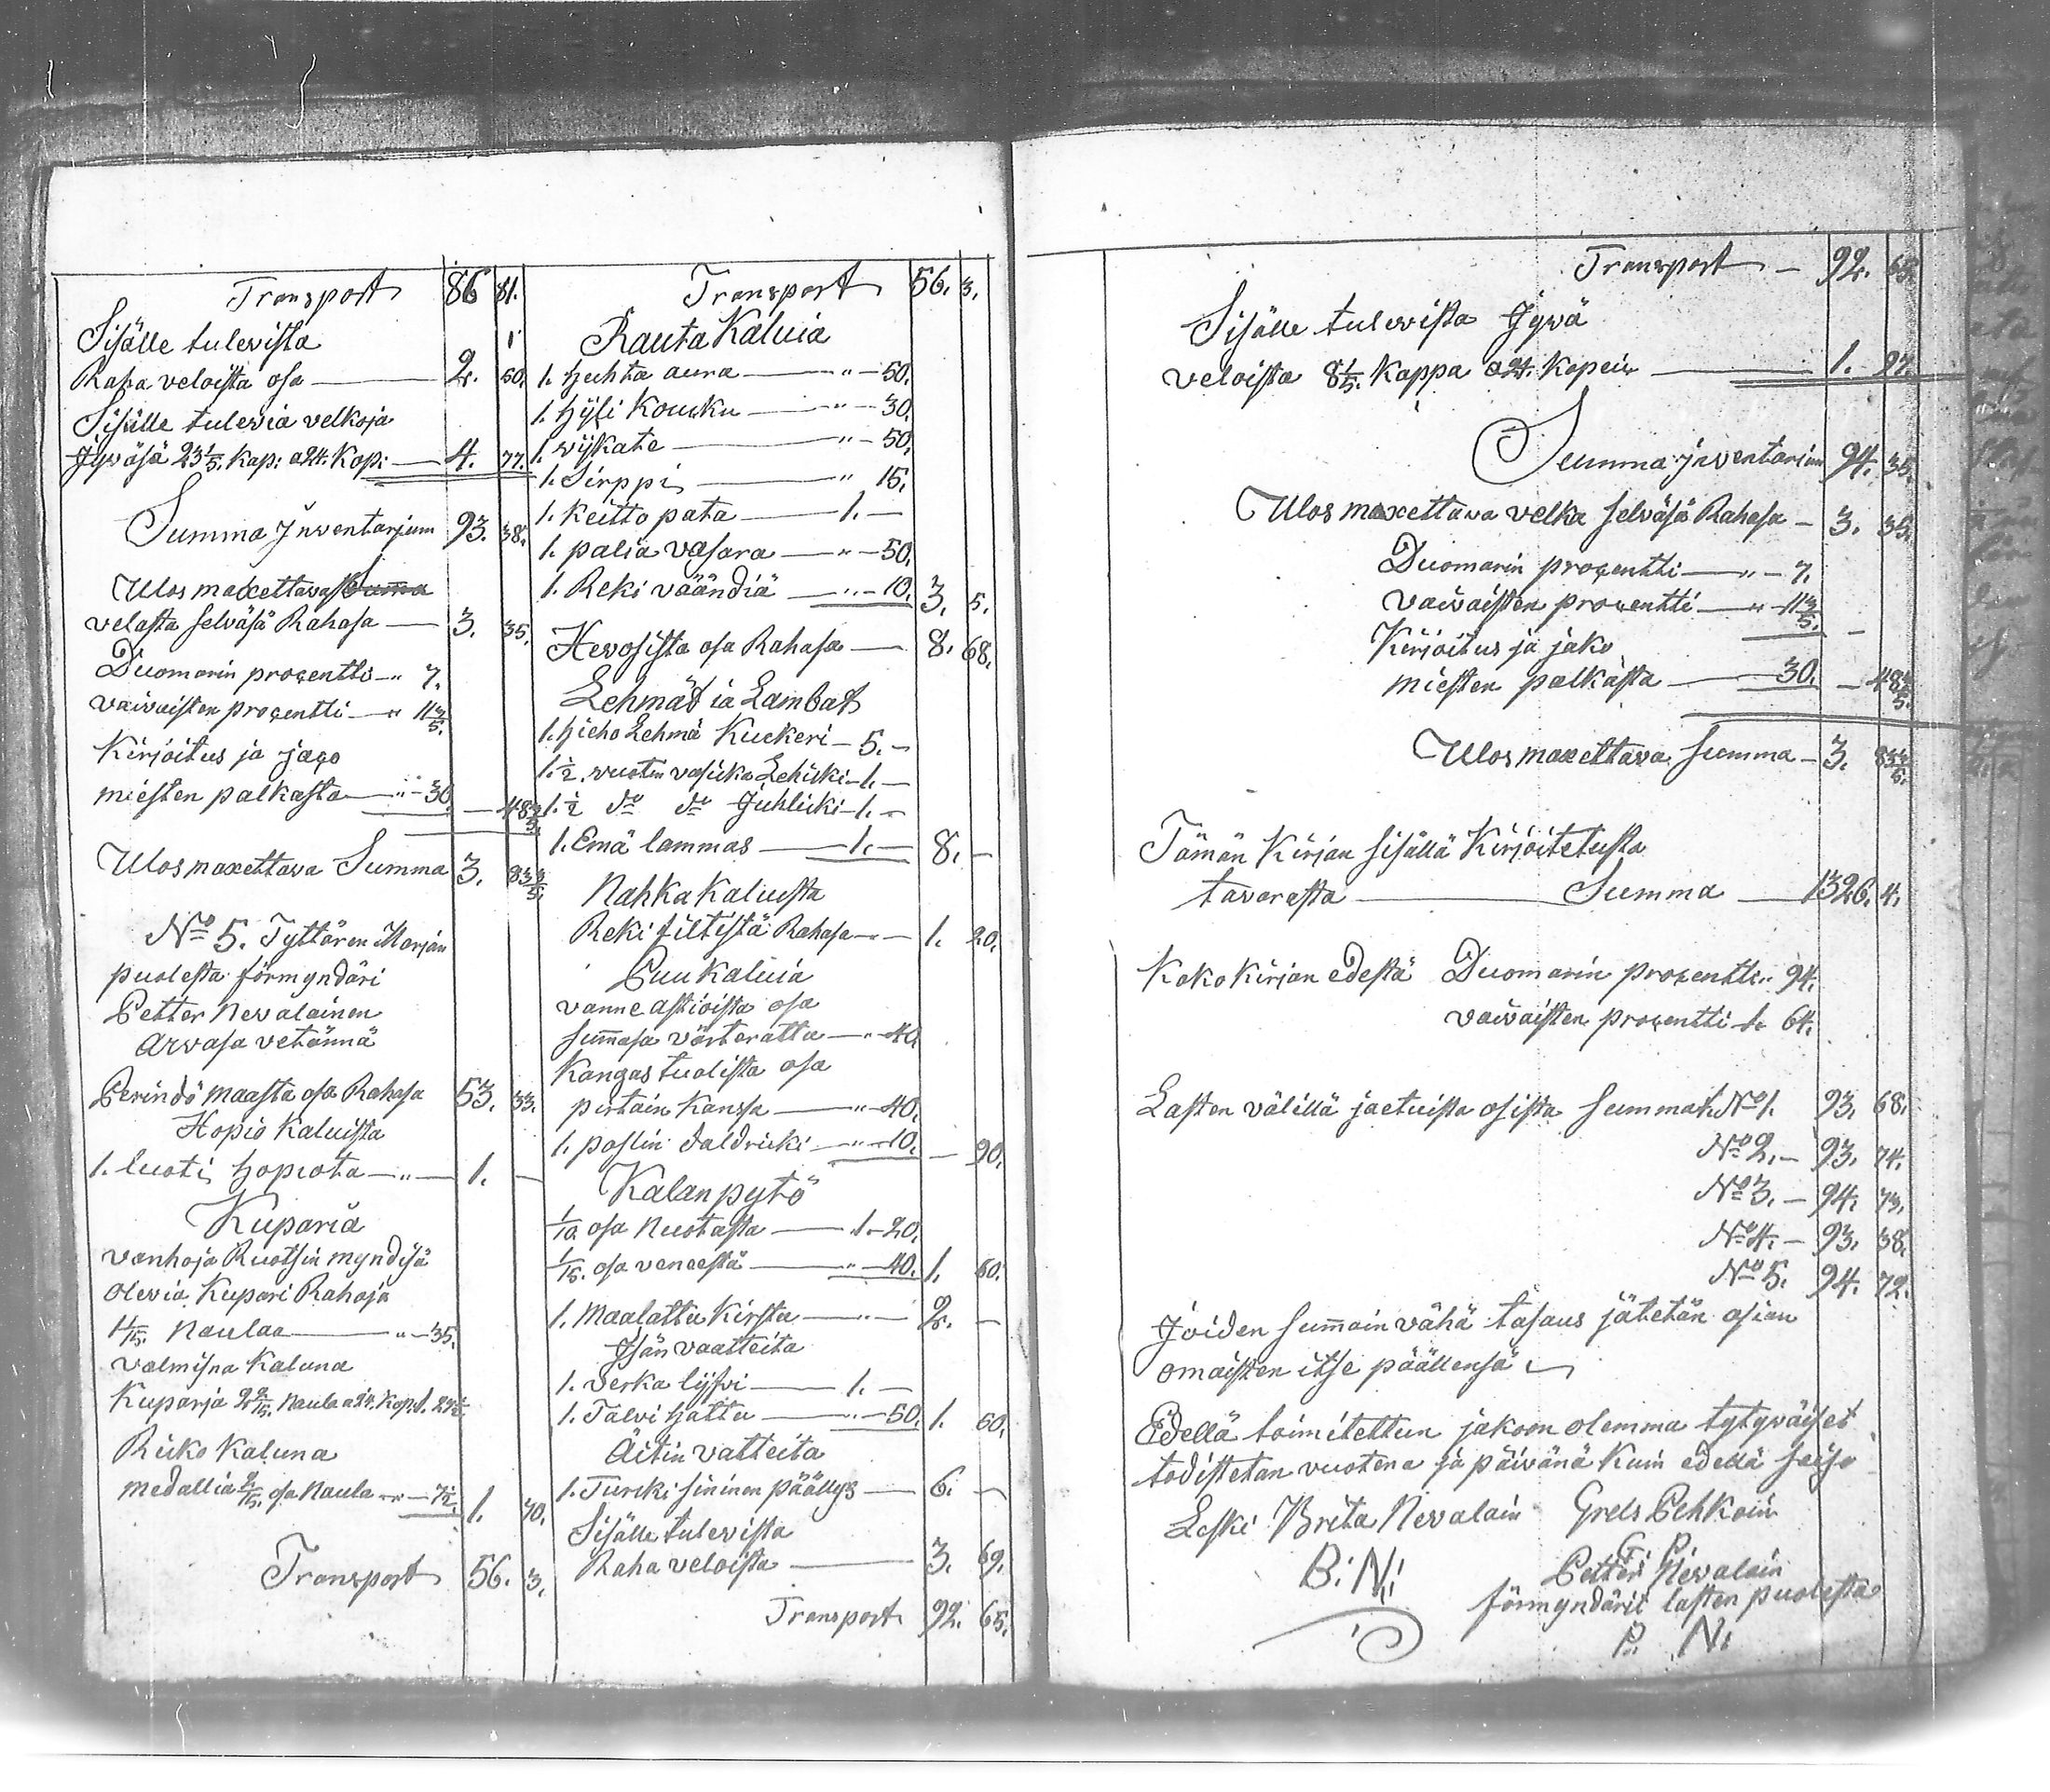 Transport 86 81.
Sisälle tulevista 1
Raha veloista osa — 2. 50.
Sisälle tulevia velkoja
Jyväsä 23 1/5. kap: a 24. Kop: — 4. 77.
Summa Inventarjum 93. 38.
Ulosmaxettavasta Summa
velasta selväsä Rahasa — 3. 35.
Duomarin prosentti — " 7.
vaivaisten prosentti — " 11 3/5.
Kirjoitus ja jago
miesten palkasta — " — 30. — 48 3/5.
Ulosmaxettava Summa 3. 83 3/5.
No 5. Tyttären Marjan
puolesta förmyndäri
Petter Nevalainen
arvasa vetännä
Perindö maasta osa Rahasa 53. 33.
Hopio Kaluista
1. luoti hopiota — " — 1. —
Kuparia
vanhoja Ruotsin myndisä
olevia Kupari Rahoja
1 1/15. Naulaa — " — 35.
valmisna Kaluna
Kuparja 2 2/15. Naula a 24. Kop: 1. 27 1/2
Riiko Kaluna
medallia 2/15. osa Naula — " — 7 1/2. 1. 70.
Transport 56. 3.
Transport 56. 3.
Rauta Kaluia
1. huhta aura — " — 50.
1. hÿli Kousku — " — 30.
1. wijkate — " — 50.
1. Sirppi — " 15.
1. Keitto pata — 1. —
1. palia vasara — " — 50.
1. Reki väändiä — " — 10. 3. 5.
Hevosista osa Rahasa — 8. 68.
Lehmät ia Lambat
1. hieho Lehmä Kuckeri — 5. —
1. 1/2. vuoten vasicka Lehicki — 1. —
1. 1/2 do do Juhlicki — 1. —
1. Emä lammas — 1. — 8. —
Nahka Kaluista
Reki filtistä Rahasa — " — 1. 20.
Puu Kaluia
vanne astioista osa
summasa värteratta — " — 40.
Kangas tuolista osa
pirtain Kanssa — " — 40.
1. poslin daldricki — " — 10. — 90.
Kalan pytö
1/10. osa Nuotasta — 1. — 20.
1/15. osa veneestä — " — 40. 1. 60.
1. Maalattu Kirsta — " — 2. —
Isän vaatteita
1. verka lijfvi — 1. —
1. Talvi hattu — " — 50. 1. 50.
Äitin vatteita
1. Turcki sininen päällys — 6. —
Sisälle tulevista
Raha veloista — 3. 69.
Transport 92. 65.
Transport — 92. 65.
Sisälle tulevista Jyvä
veloista 8 1/5. Kappa a 24. Kopeic — 1. 97.
Summa jnventarium 94. 35.
Ulosmaxettava velka selväsä Rahasa — 3. 35.
Duomarin prosentti — " — 7.
vaivaisten prosentti — " — 11 3/5. —
Kirjoitus ja jako
miesten palkasta — 30. — 48 3/5.
Ulosmaxettava summa — 3. 83 3/5.
Tämän Kirjan sisällä Kirjoitetusta
tavarasta — Summa — 1326. 4.
Koko Kirjan edestä Duomarin prosentti " 94.
vaivaisten prosentti 1. 64.
Lasten välillä jaetuista osista Summat. No 1. 93. 68.
No 2. — 93. 74.
No 3. — 94. 73.
No 4. — 93. 38.
No 5. 94. 72.
Joiden summain vähä tasaus jätetän asian
omaisten itse päällensä
Edellä toimitettun jakoon olemma tytyväiset
todistetan vuotena ja päivänä Kuin edellä seiso
Leski Brita Nevalain Grels Pehkoin
B: N: G. P.
Petter Nevalain
förmyndärit lasten puolesta
P. N: